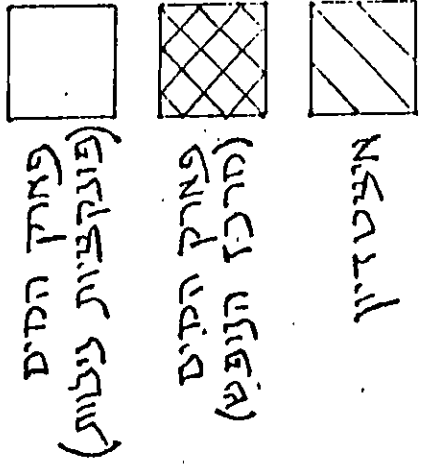 פארק המים
(פונקציות נילוות)
פארק המים
(מרכז הנופש)
איצטדיון